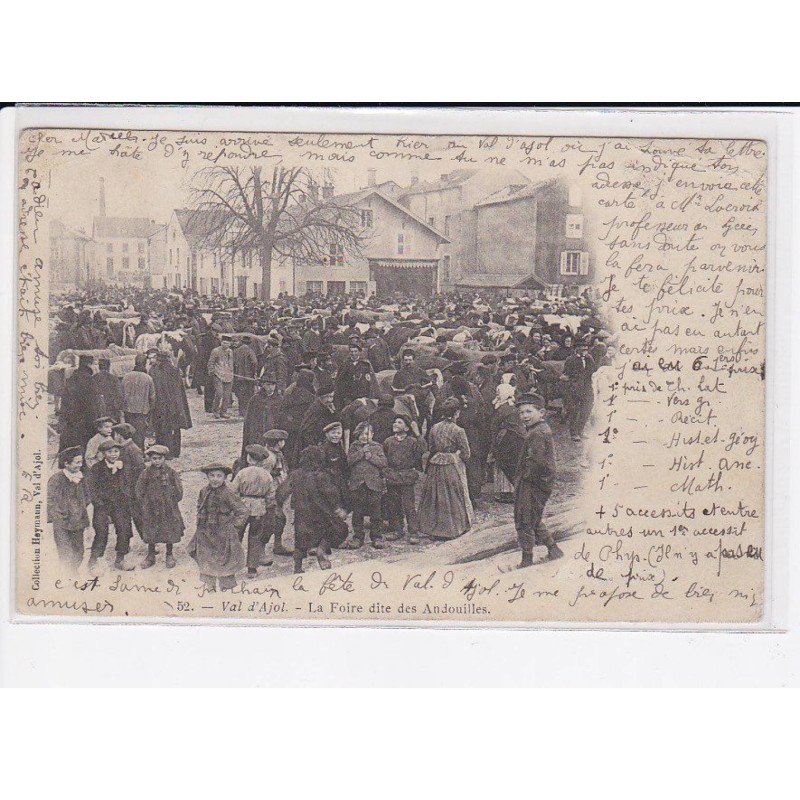 cher Marcel. Je suis arrivé seulement hier au Val d'ajol où j'ai trouvé ta lettre
Je me hâte d'y répondre mais comme tu ne m'as pas indiqué ton
adresse, j'envoie cette
carte à Mr Lacroix
professeur au lycée
sans doute on vous
la fera parvenir
Je te félicite de
tes prix. Je n'en
ai pas eu autant
certes mais enfin
j'ai eu 6 prix
1r prix de Th. lat
1r — Vers gr.
— Récit
1r — Hist et géog
1r — Hist. Anc.
1r — Math.
+ 5 accessits et entre
autres un 1er accessit
de Phys. (Il n'y a pas eu
de prix)
c'est Samedi prochain la fête du Val d'Ajol. Je me propose de bien m'y
amuser
52. — Val d'Ajol. - La Foire dite des Andouilles.
Collection Heymann, Val d'Ajol.